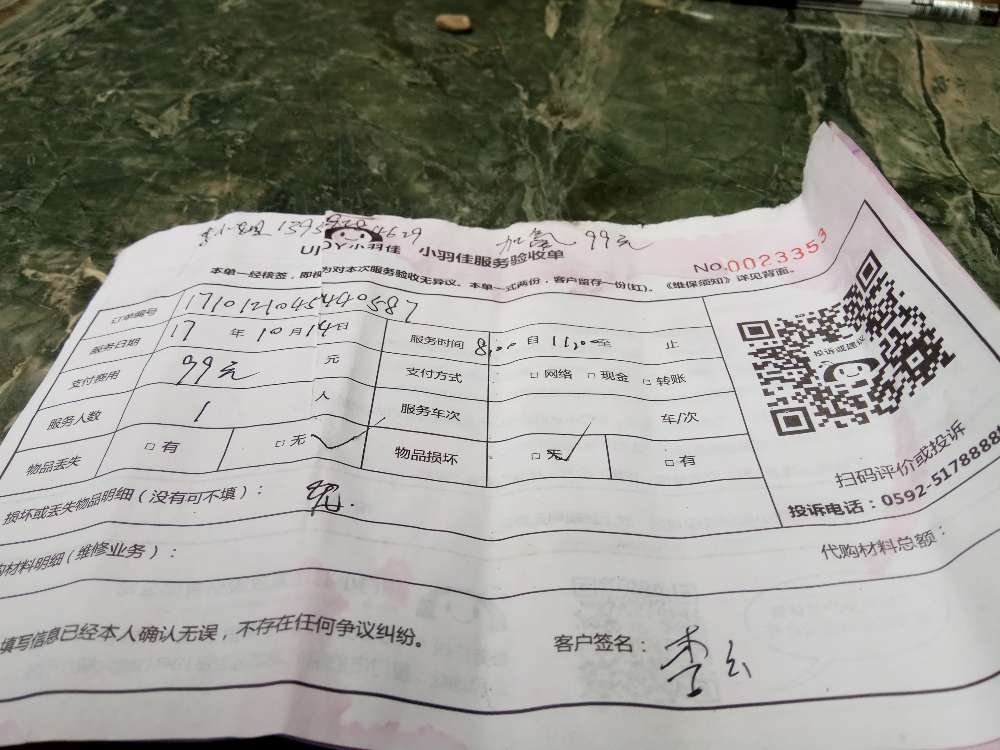 加氢 99元
小羽佳 小羽佳服务验收单
No.0023353
本单一经核签，即视为对本次服务验收无异议。本单一式两份，客户留存一份(红)。《维保须知》详见背面。
订单编号 17101210454440587
服务日期 17 年 10 月 14 日 服务时间 8:00 自 11:00 至 止
支付费用 99元 元 支付方式 □ 网络 □ 现金 □ 转账
服务人数 1 人 服务车次 车/次
物品丢失 □ 有 □ 无 物品损坏 □ 无 □ 有
投诉或建议
扫码评价或投诉
投诉电话：0592-5178888
损坏或丢失物品明细（没有可不填）：
购材料明细（维修业务）： 代购材料总额：
填写信息已经本人确认无误，不存在任何争议纠纷。
客户签名： 李